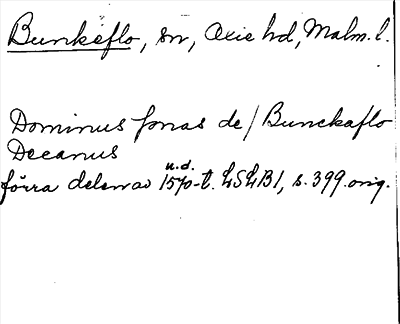 Bunkeflo, sn, Oxie hd, Malm. l.
Dominus Jonas de / Bunckaflo
Decanus
u.d.
förra delen av 1570-t. LSLB1, s. 399. orig.